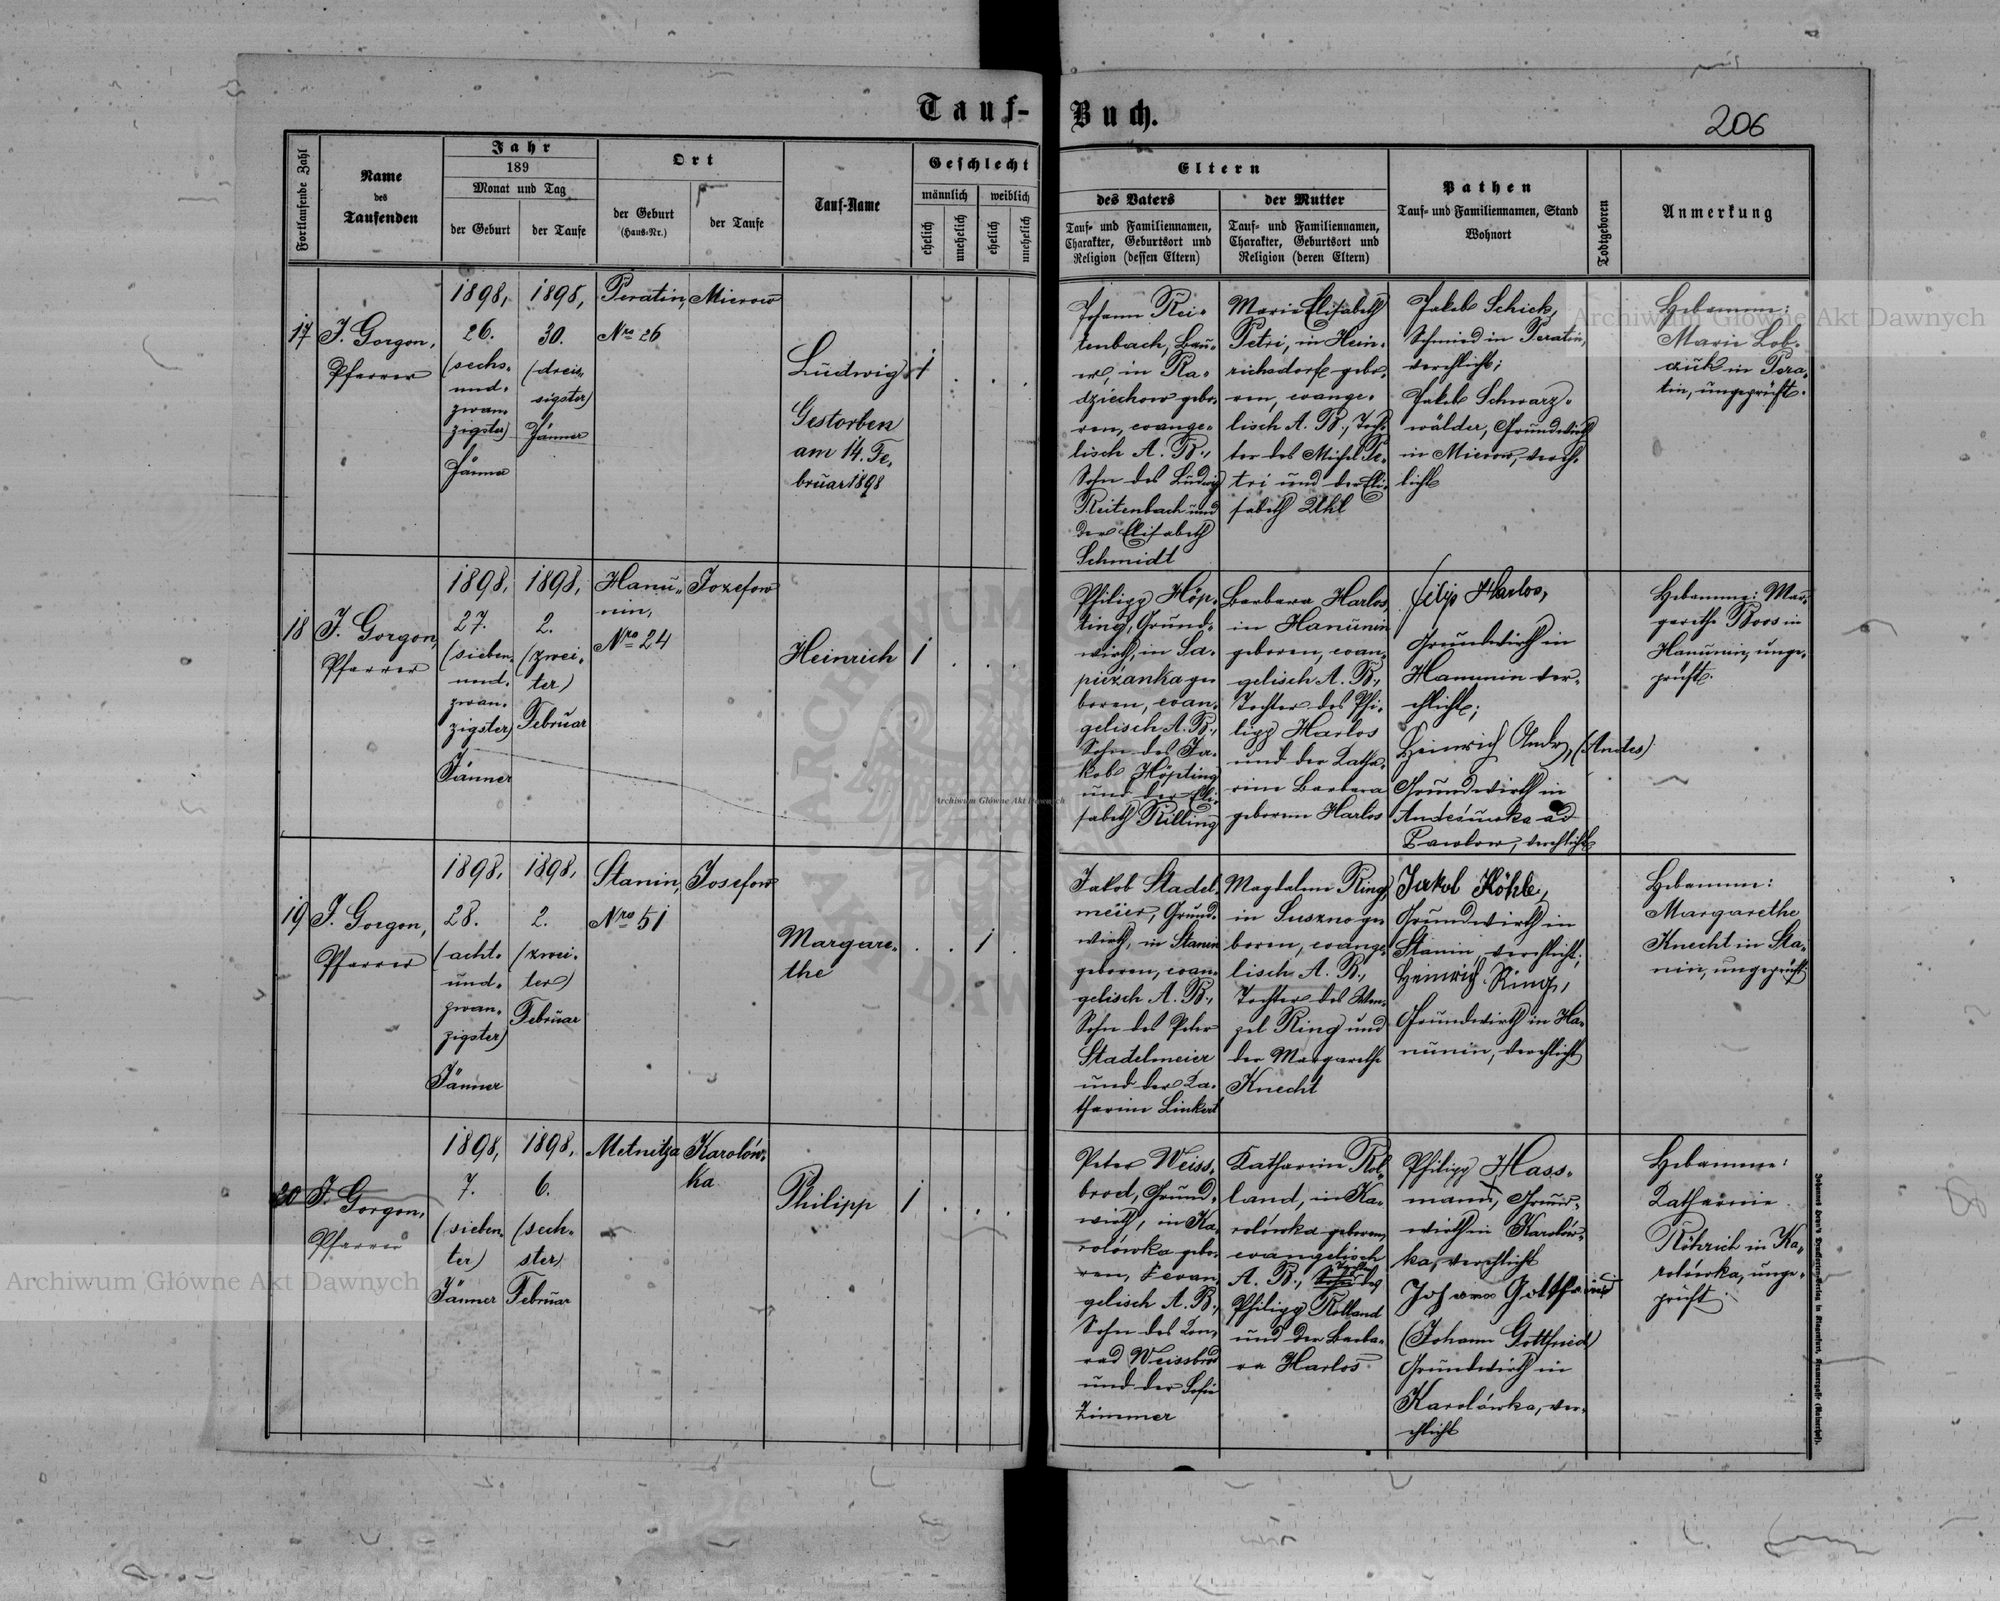 Tauf-Buch.
206
Fortlaufende Zahl
Name
des
Taufenden
Jahr
189
Monat und Tag
der Geburt
der Taufe
Ort
der Geburt
(Haus-Nr.)
der Taufe
Tauf-Name
Geschlecht
männlich
weiblich
ehelich
unehelich
ehelich
unehelich
Eltern
des Vaters
Tauf- und Familiennamen,
Charakter, Geburtsort und
Religion (dessen Eltern)
der Mutter
Tauf- und Familiennamen,
Charakter, Geburtsort und
Religion (deren Eltern)
Pathen
Tauf- und Familiennamen, Stand
Wohnort
Todtgeboren
Anmerkung
17
J. Gorgon,
Pfarrer
1898,
26.
(sechs-
und-
zwan-
zigster)
Jänner
1898,
30.
(dreis-
sigster)
Jänner
Peratin,
Nro 26
Mierow
Ludwig
Gestorben
am 14. Fe-
bruar 1898
1
Johann Rei-
tenbach, Bau-
er, in Ra-
dziechow gebo-
ren, evange-
lisch A. B.,
Sohn des Ludwig
Reitenbach und
der Elisabeth
Schmidt
Marie Elisabeth
Petri, in Hein-
richsdorf gebo-
ren, evange-
lisch A. B., Toch-
ter des Michel Pe-
tri und der Eli-
sabeth Uhl
Jakob Schick,
Schmied in Peratin,
verehlicht;
Jakob Schwarz-
wälder, Grundwirth
in Mierow, vereh-
licht
Hebamme:
Marie Lob-
cziuk in Pera-
tin, ungeprüft.
18
J. Gorgon,
Pfarrer
1898,
27.
(sieben-
und-
zwan-
zigster)
Jänner
1898,
2.
(zwei-
ter)
Februar
Hanu-
nin,
Nro 24
Jozefow
Heinrich
1
Philipp Höp-
ting, Grund-
wirth, in Sa-
pieżanka ge-
boren, evan-
gelisch A. B.,
Sohn des Ja-
kob Höpting
und der Eli-
sabeth Rilling
Barbara Harlos,
in Hanunin
geboren, evan-
gelisch A. B.,
Tochter des Phi-
lipp Harlos
und der Katha-
rine Barbara
geborene Harlos
filip Harlos,
Grundwirth in
Hanunin ver-
ehlicht;
Heinrich Andes, (Andes)
Grundwirth in
Pawlow, verehlicht
Hebamme: Mar-
garethe Boos in
Hanunin, unge-
prüft.
19
J. Gorgon,
Pfarrer
1898,
28.
(acht-
und-
zwan-
zigster)
Jänner
1898,
2.
(zwei-
ter)
Februar
Stanin,
Nro 51
Josefow
Margare-
the
1
Jakob Stadel-
meier, Grund-
wirth, in Stanin
geboren, evan-
gelisch A. B.,
Sohn des Peter
Stadelmeier
und der Ka-
tharine Linkert
Magdalene Ring,
in Suszno ge-
boren, evange-
lisch A. B.,
Tochter des Wen-
zel Ring und
der Margarethe
Knecht
Jakob Köhle,
Grundwirth in
Stanin, verehlicht;
Heinrich Ring,
Grundwirth in Ha-
nunin, verehlicht
Hebamme:
Margarethe
Knecht in Sta-
nin, ungeprüft.
20
J. Gorgon,
Pfarrer
1898,
7.
(sieben-
ter)
Jänner
1898,
6.
(sech-
ster)
Februar
Metnitza
Karolów-
ka
Philipp
1
Peter Weiss-
brod, Grund-
wirth, in Ka-
rolówka gebo-
ren, evan-
gelisch A. B.,
Sohn des Kon-
rad Weissbrod
und der Sofie
Zimmer
Katharine Rol-
land, in Ka-
rolówka geboren,
evangelisch
A. B., Tochter des
Philipp Rolland
und der Barba-
ra Harlos
Philipp Hass-
mann, Grund-
wirth in Karolów-
ka, verehlicht
Johann Gottfried
(Johann Gottfried)
Grundwirth in
Karolówka, ver-
ehlicht
Hebamme:
Katharine
Röhrich in Ka-
rolówka, unge-
prüft.
Archiwum Główne Akt Dawnych
Archiwum Główne Akt Dawnych
Archiwum Główne Akt Dawnych